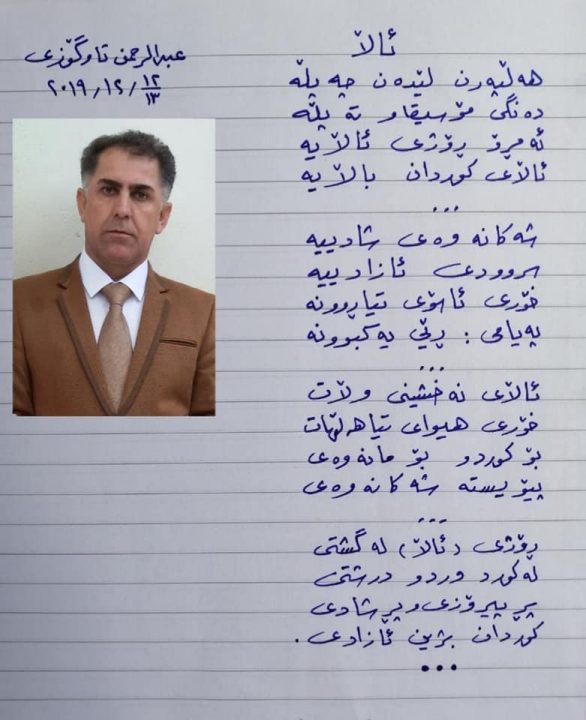 ئالآ
عبدالرحمن تاوگۆزی
١٢/١٣ / ١٢ / ٢٠١٩
هەڵپەڕن لێدەن چەپڵە
دەنگی مۆسیقاو تەپڵە
ئەمڕۆ ڕۆژی ئالآیە
ئالآی کوردان بالآیە
...
شەکانەوەی شادییە
سروودی ئازادییە
خۆری ئاسۆی تیاڕوونە
پەیامی : ڕێی یەکبوونە
...
ئالآی نەخشینی ولآت
خۆری هیوای تیاهەڵهات
بۆ کوردو بۆ مانەوەی
پێویستە شەکانەوەی
...
ڕۆژی (ئالآ) لەگشتی
لەکورد وردو درشتی
پڕ پیرۆزی و پڕ شادی
کوردان بژین ئازادی .
...